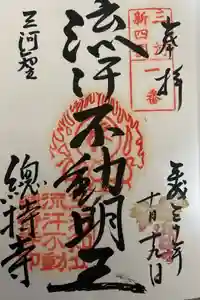 奉拝
三河
新四国
一番
平成三十年
十月十九日
流汗不動明王
三河聖
總持寺
流汗不動